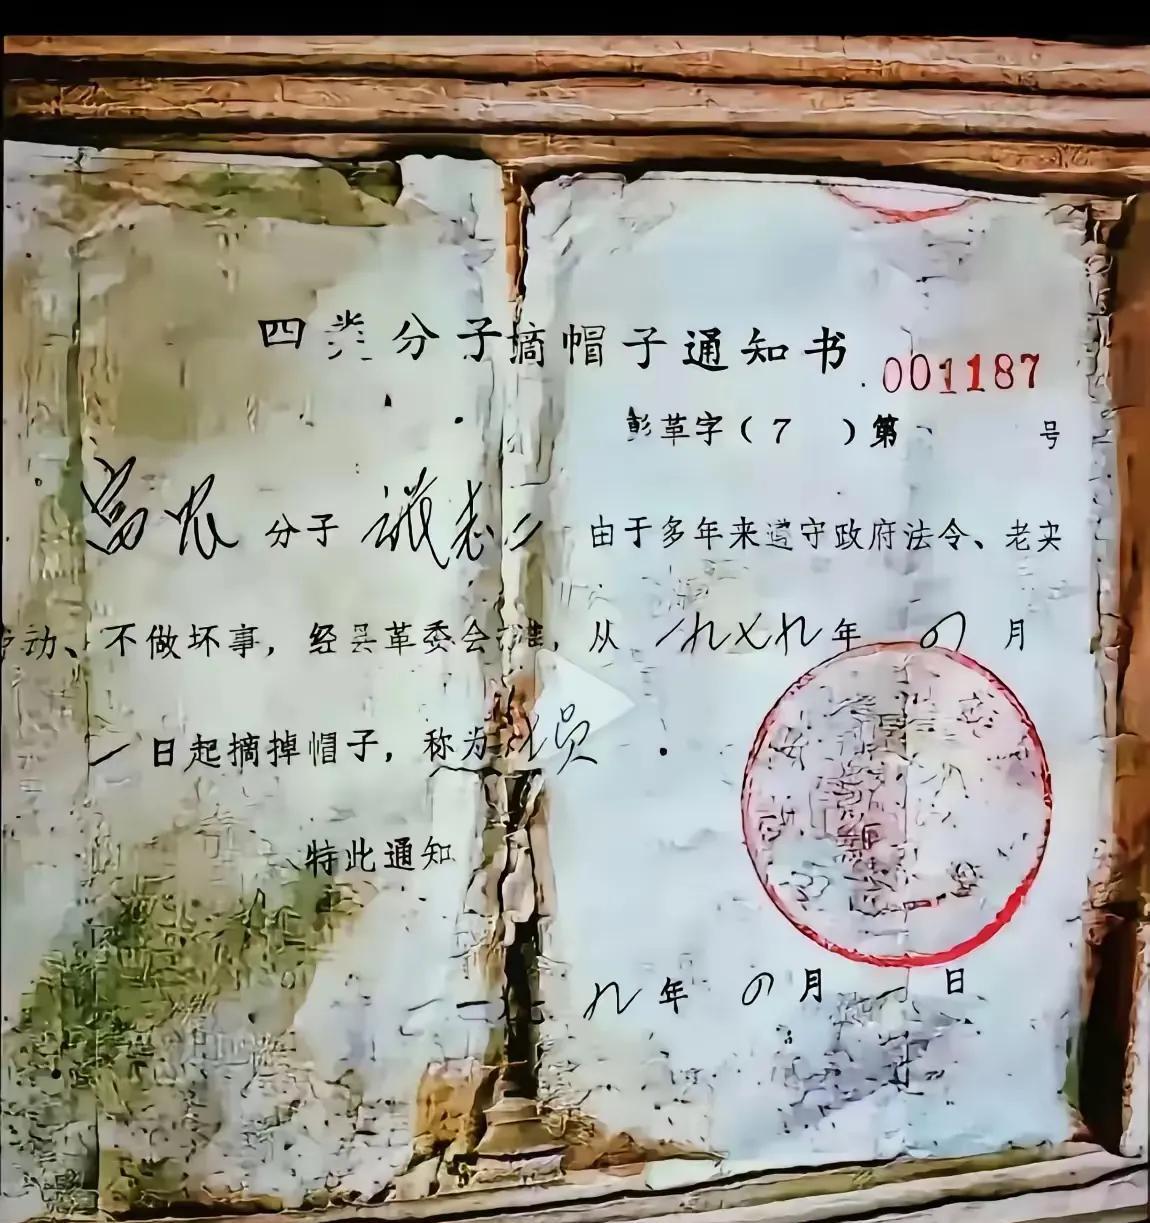 四类分子摘帽子通知书
001187
彭革字(7 )第 号
富农 分子 志二 由于多年来遵守政府法令、老实
劳动、不做坏事,经县革委会批准,从一九七九年 四 月
一日起摘掉帽子,称为社员.
特此通知
一九七九年 四月 一日